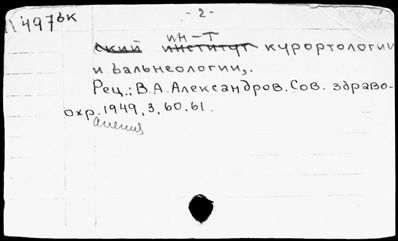 - 2 -
497бк
ин-т
ский институт курортологии
и бальнеологии,.
Рец.: В.А.Александров. Сов. здраво-
охр. 1949, 3, 60, 61.
анения